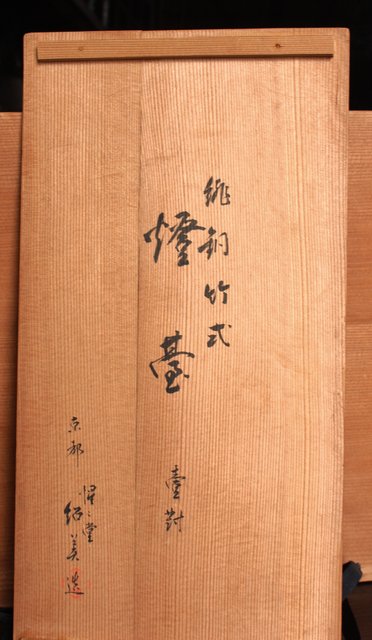 緋銅竹式
燈臺
壹對
京都
堂
紹美造